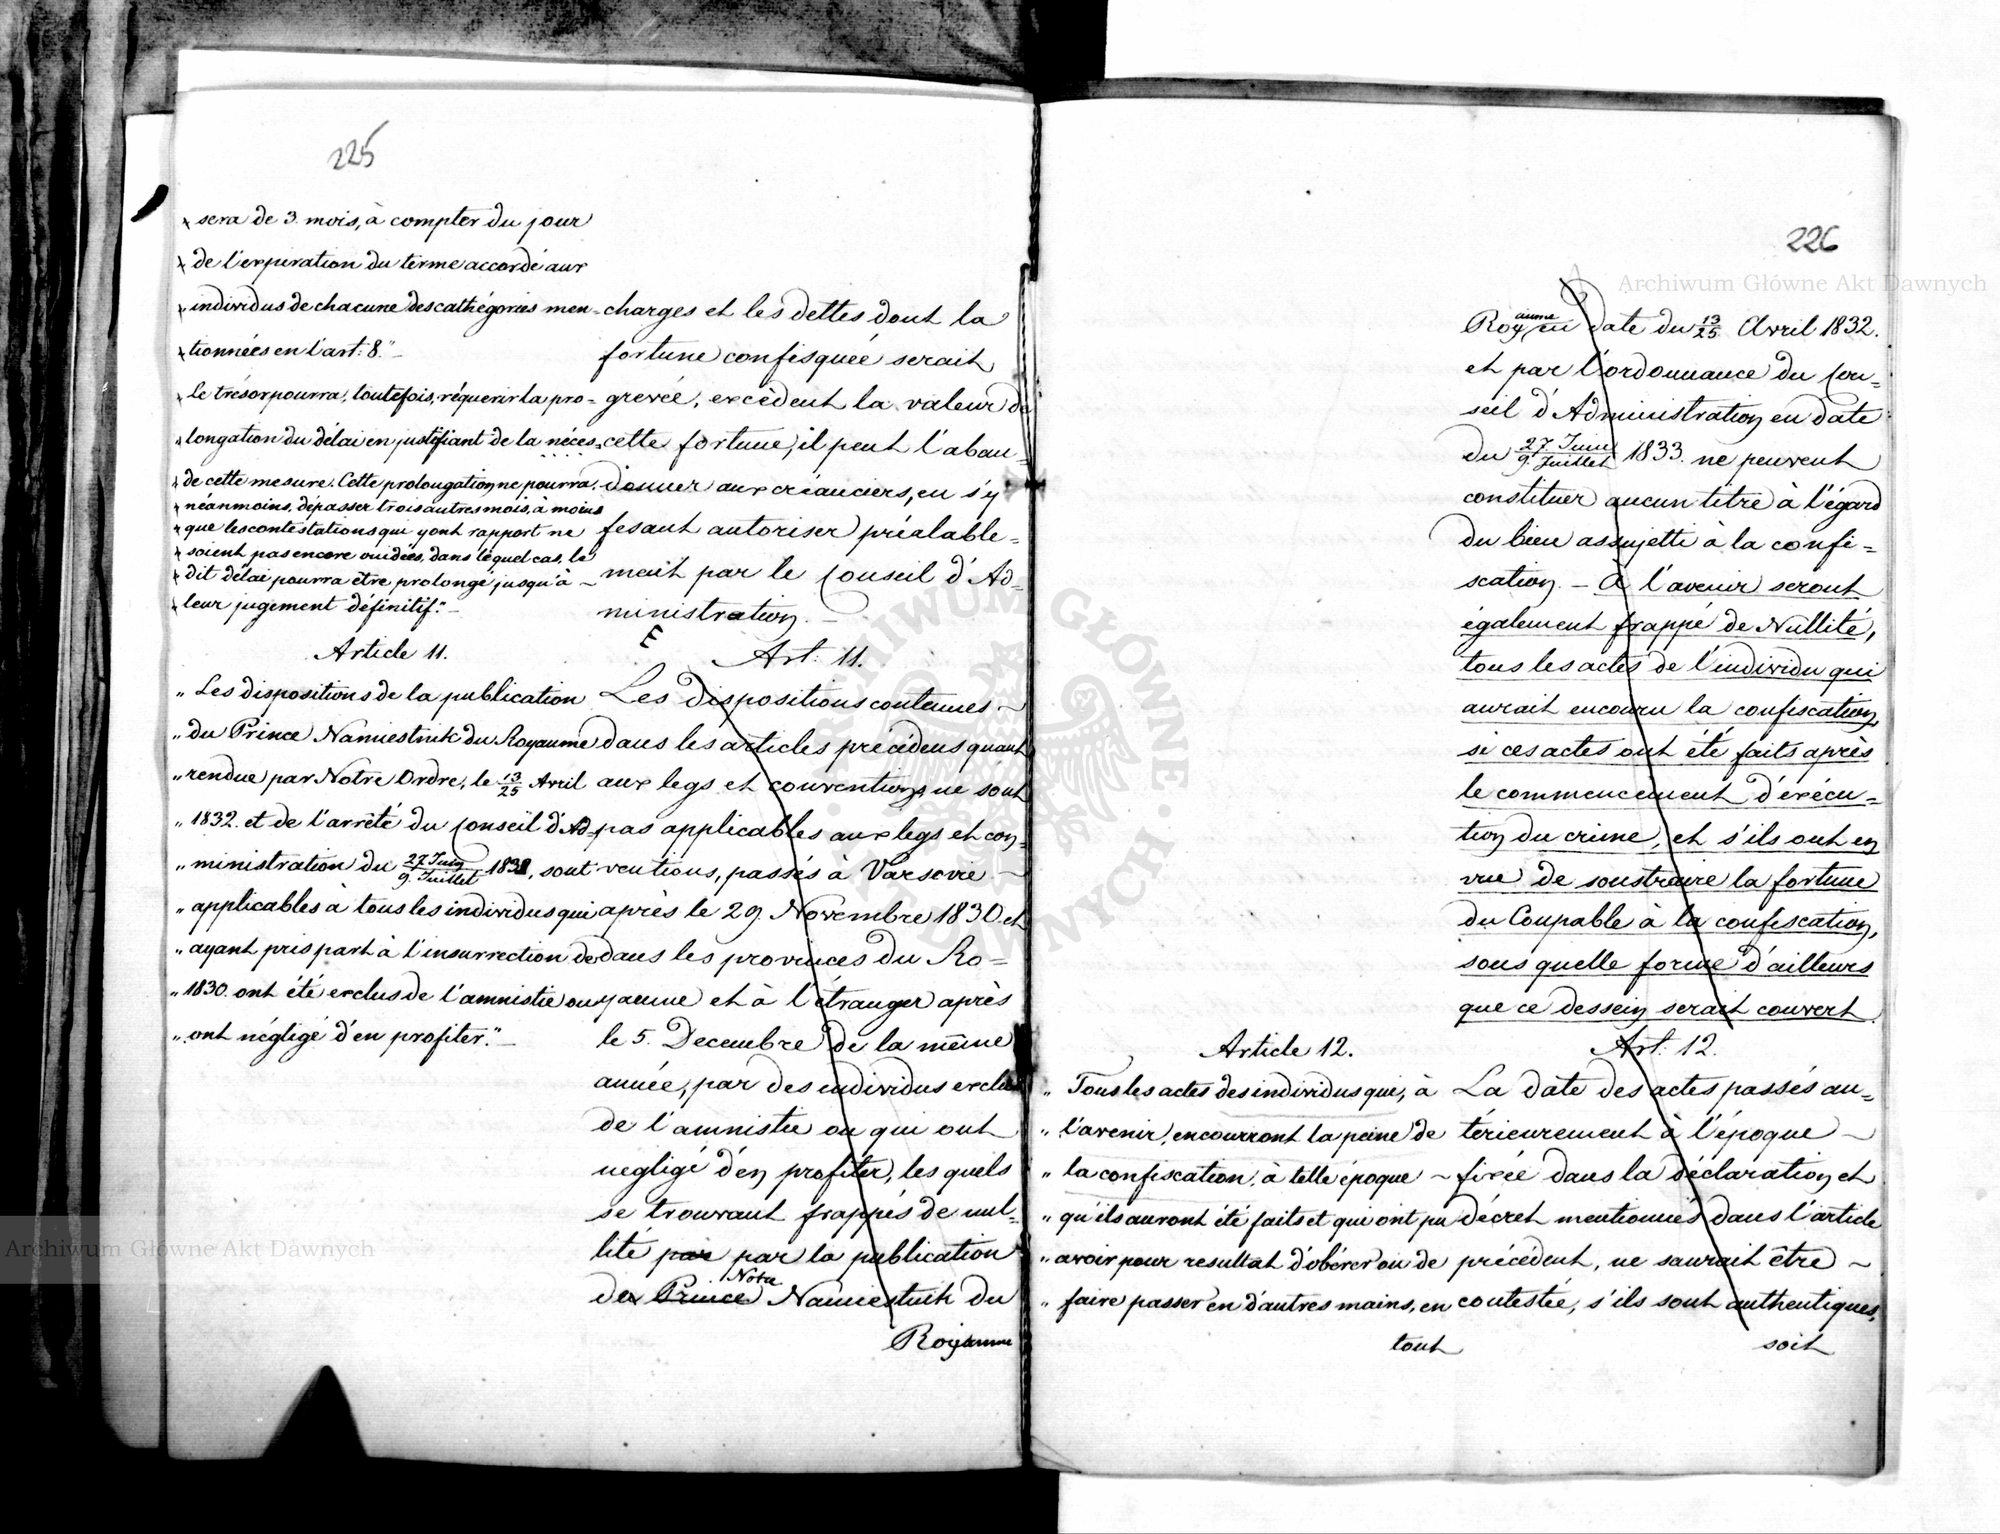 225
sera de 3. mois, à compter du jour
de l'expiration du terme accordé aux
individus de chacune des cathégories men-
tionnées en l'art: 8."
Le trésor pourra, toutefois, réquerir la pro-
longation du délai en justifiant de la néces-
de cette mesure. Cette prolongation ne pourra
néanmoins, dépasser trois autres mois, à moins
que les contestations qui y ont rapport ne
soient pas encore vuidées, dans lequel cas, le
dit délai pourra être prolongé jusqu'à
leur jugement définitif."
Article 11.
" Les dispositions de la publication
" du Prince Namiestnik du Royaume
" rendue par Notre Ordre, le 13/25 Avril
" 1832. et de l'arrêté du Conseil d'Ad-
" ministration du 27 Juin/9. Juillet 1833, sont
" applicables à tous les individus qui
" ayant pris part à l'insurrection de
" 1830. ont été exclus de l'amnistie ou
" ont négligé d'en profiter."
charges et les dettes dont la
fortune confisquée serait
grevée, excèdent la valeur de
cette fortune, il peut l'aban-
donner aux créanciers, en s'y
fesant autoriser préalable-
ment par le Conseil d'Ad-
ministration.
E
Art: 11.
Les dispositions contenues
dans les articles précédens quant
aux legs et conventions, ne sont
pas applicables aux legs et con-
ventions, passés à Varsovie
après le 29. Novembre 1830 et
dans les provinces du Ro-
yaume et à l'étranger après
le 5. Decembre de la même
année, par des individus exclus
de l'amnistie ou qui ont
negligé d'en profiter, les quels
se trouvant frappés de nul-
lité par par la publication
de Prince Notre Namiestnik du
Royaume
226
Royaume en date du 13/25 Avril 1832.
et par l'ordonnance du Con-
seil d'Administration en date
du 27 Juin/9. Juillet 1833. ne peuvent
constituer aucun titre à l'égard
du bien assujetti à la confi-
scation. - À l'avenir seront
également frappé de Nullité,
tous les actes de l'individu qui
aurait encouru la confiscation,
si ces actes ont été faits après
le commencement d'exécu-
tion du crime, et s'ils ont en
vue de soustraire la fortune
du Coupable à la confiscation,
sous quelle forme d'ailleurs
que ce dessein serait couvert.
Article 12.
" Tous les actes des individus qui, à
" l'avenir, encourront la peine de
" la confiscation, à telle époque
" qu'ils auront été faits et qui ont pu
" avoir pour resultat d'obérer ou de
" faire passer en d'autres mains, en
tout
Art: 12.
La date des actes passés an-
térieurement à l'époque
fixée dans la déclaration et
décret mentionnés dans l'article
précédent, ne saurait être
contestée, s'ils sont authentiques,
soit
Archiwum Główne Akt Dawnych
Archiwum Główne Akt Dawnych
ARCHIWUM GŁÓWNE · AKT DAWNYCH ·